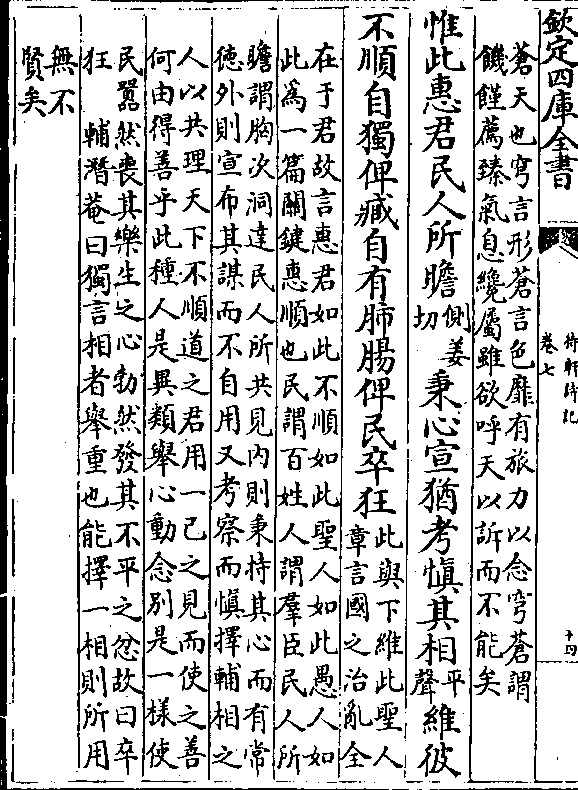 欽定四庫全書
待軒詩記
卷七
十四
蒼天也穹言形蒼言色靡有旅力以念穹蒼謂
饑饉薦臻氣息纔屬雖欲呼天以訴而不能矣
惟此惠君民人所瞻側姜切秉心宣猶考慎其相平聲維彼
不順自獨俾臧自有肺腸俾民卒狂此與下維此聖人
章言國之治亂全
在于君故言惠君如此不順如此聖人如此愚人如
此為一篇關鍵惠順也民謂百姓人謂羣臣民人所
瞻謂胸次洞達民人所共見内則秉持其心而有常
德外則宣布其謀而不自用又考察而慎擇輔相之
人以共理天下不順道之君用一已之見而使之善
何由得善乎此種人是異類舉心動念别是一樣使
民嚚然喪其樂生之心勃然發其不平之忿故曰卒
狂 輔潛菴曰獨言相者舉重也能擇一相則所用
無不
賢矣